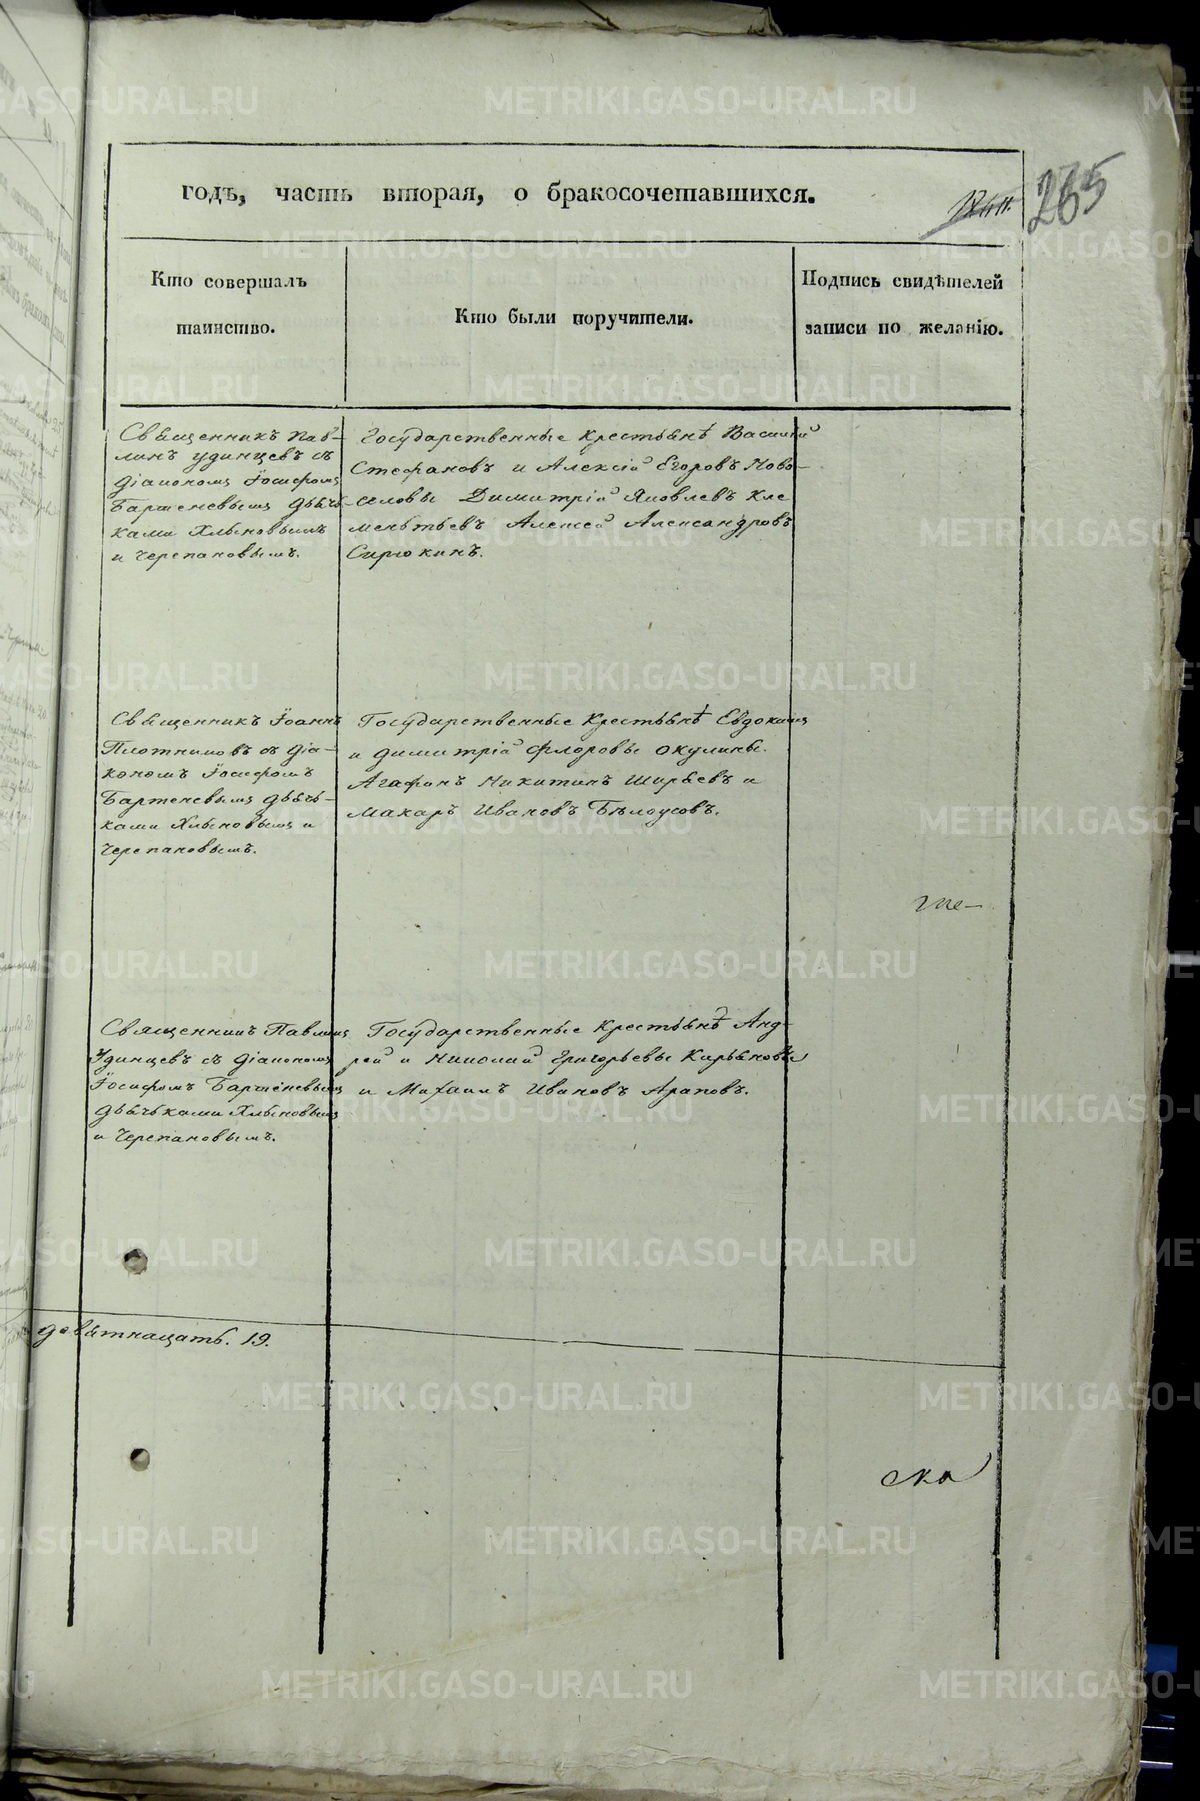 годъ, часть вторая, о бракосочетавшихся.
265
Кто совершалъ
таинство.
Кто были поручители.
Подпись свидѣтелей
записи по желанію.
Священникъ Пав-
линъ Удинцевъ съ
Діакономъ Іосифомъ
Бартеневымъ дьяч-
ками Хлыновымъ
и Черепановымъ.
Государственные крестьянѣ Василій
Стефановъ и Алексій Егоровъ Ново-
селовы Димитрій Яковлевъ Кле
ментьевъ Алексей Александровъ
Сирюкинъ.
Священникъ Іоаннъ
Плотниковъ съ Діа-
кономъ Іосифомъ
Бартеневымъ дьячь-
ками Хлыновымъ и
Черепановымъ.
Государственные крестьянѣ Евдокимъ
и Димитрій Флоровы Окулины.
Агафонъ Никитинъ Ширяевъ и
Макаръ Ивановъ Бѣлоусовъ.
Священникъ Павлинъ
Удинцевъ съ Діакономъ
Іосифомъ Бартеневымъ
дьячьками Хлыновымъ
и Черепановымъ.
Государственные крестьянѣ Анд-
рей и Николай Григорьевы Кирьяновы
и Михаилъ Ивановъ Араповъ.
девятнацать. 19.
ска
METRIKI.GASO-URAL.RU